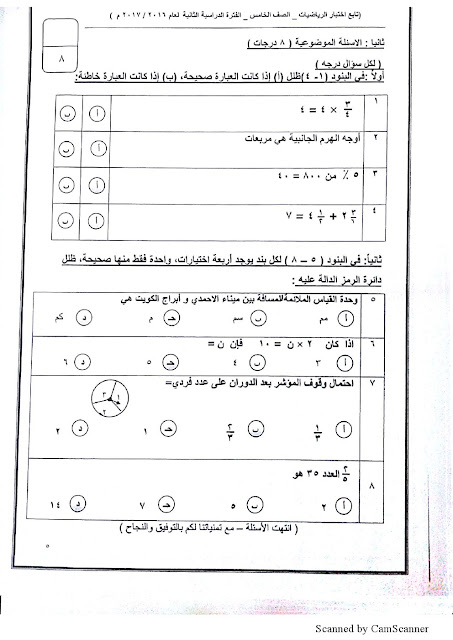 (تابع اختبار الرياضيات _ الصف الخامس _ الفترة الدراسية الثانية لعام ٢٠١٦ / ٢٠١٧ م )
ثانيا : الاسئلة الموضوعية ( ٨ درجات )
٨
( لكل سؤال درجه )
أولاً :في البنود (١- ٤)ظلل (أ) إذا كانت العبارة صحيحة، (ب) إذا كانت العبارة خاطئة:
١ ٣/٤ × ٤ = ٤ أ ب
٢ أوجه الهرم الجانبية هي مربعات أ ب
٣ ٥ ٪ من ٨٠٠ = ٤٠ أ ب
٤ ٢ ٣/١ + ٤ ١/٢ = ٧ أ ب
ثانياً: في البنود ( ٥ – ٨ ) لكل بند يوجد أربعة اختيارات، واحدة فقط منها صحيحة، ظلل
دائرة الرمز الدالة عليه :
٥ وحدة القياس الملائمة للمسافة بين ميناء الاحمدي و أبراج الكويت هي
أ مم ب سم جـ م د كم
٦ اذا كان ٢ × ن = ١٠ فإن ن =
أ ٣ ب ٤ جـ ٥ د ٦
٧ احتمال وقوف المؤشر بعد الدوران على عدد فردي=
٣ ١ ٢
أ ١/٣ ب ٢/٣ جـ ١ د ٢
٨ ٢/٥ العدد ٣٥ هو
أ ٢ ب ٥ جـ ٧ د ١٤
( انتهت الأسئلة – مع تمنياتنا لكم بالتوفيق والنجاح )
٥
Scanned by CamScanner